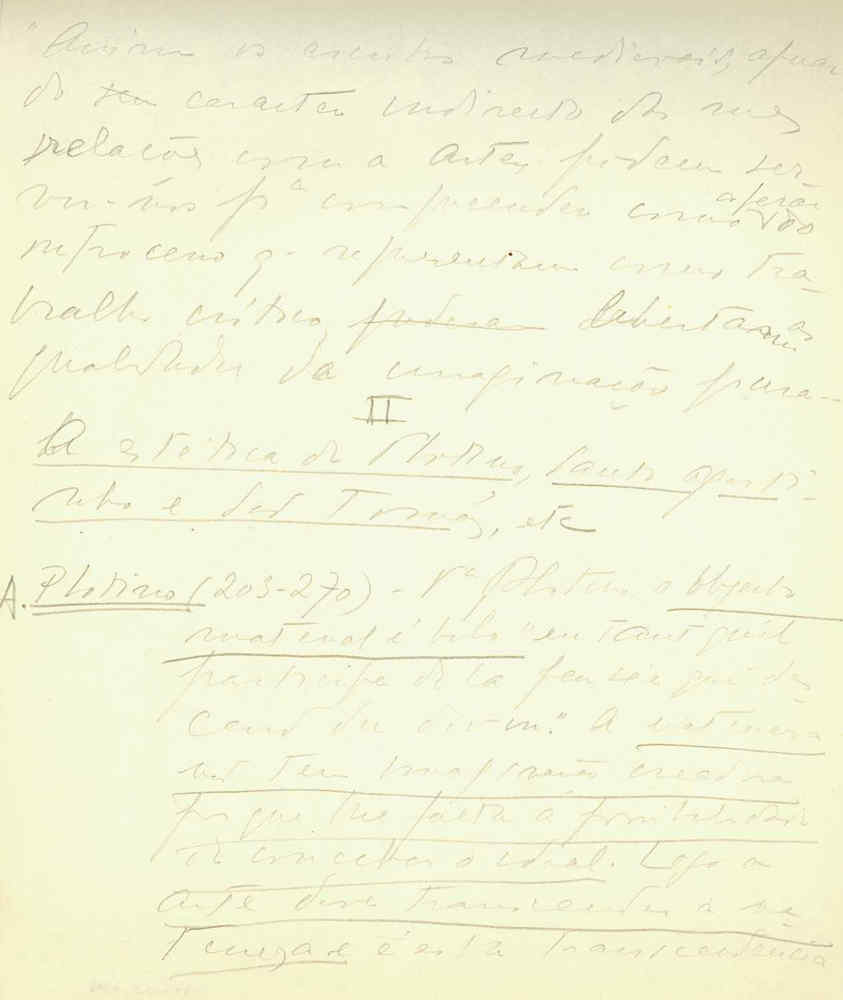 "Assim os escritos medievais, apesar
do seu caracter indirecto das suas
relações com a Arte, podem ser-
vir-nos pª compreender como
retrocesso q. representam como tra-
balho crítico, poderam libertaram as
qualidades da imaginação para-
II
A estética de Plotino, Santo Agosti-
nho e São Tomás, etc
A. Plotino (203-270) - Pª Plotino o objecto
material é belo "en tant qu'il
participe de la pensée qui des-
cend du divin." A natureza
não tem imaginação creadora
porque lhe falta a possibilidade
de conceber o ideal. Logo a
Arte deve transcender a na-
tureza e é esta transcendência